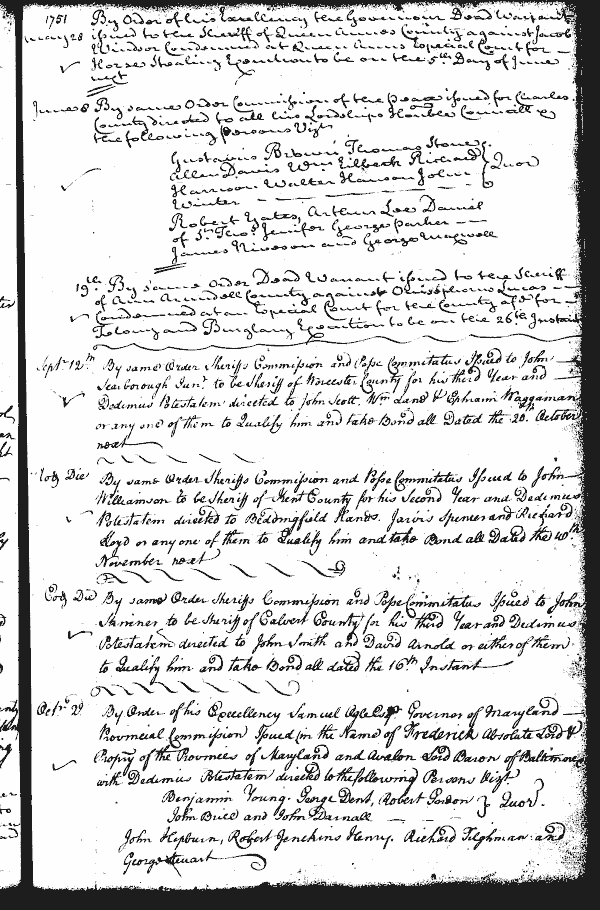 1751
May 28 By Order of his Excellency the Governour Dead Warrant
issued to the Sheriff of Queen Annes County against Jacob
Windsor Condemned at Queen Anns Especial Court for
Horse Stealing Execution to be on the 5th Day of June
next
June 8 By same Order Commission of the peace issued for Charles
County directed to all his Lordships Honble Councill &
the following persons Vizt
Gustavus Brown Thomas Stone
Allen Davis Wm Eilbeck Richard
Harrison Walter Hanson John } Quor
Winter
Robert Yates, Arthur Lee Daniel
of St. Thos. Jenifer George Parker
James Niveson and George Maxwell
19th By same Order Dead Warrant issued to the Sheriff
of Ann Arundell County against Lucas
Condemned at an Especial Court for the County afd. for
Felony and Burglary Execution to be on the 26th Instant
Sept. 12th By same Order Sheriffs Commission and Posse Commitatus Issued to John
Scarborough Junr. to be Sheriff of Worcester County for his third Year and
Dedimus Potestatem directed to John Scott, Wm Lane & Ephraim Waggaman
or any one of them to Qualify him and take Bond all Dated the 20. October
next
Eod Die By same Order Sheriffs Commission and Posse Commitatus Issued to John
Williamson to be Sheriff of Kent County for his Second Year and Dedimus
Potestatem directed to Beddingfield Hands. Jarvis Spencer and Richard
Lloyd or any one of them to Qualify him and take Bond all Dated the
November next
Eod Die By same Order Sheriffs Commission and Posse Commitatus Issued to John
Skinner to be Sheriff of Calvert County for his third Year and Dedimus
Potestatem directed to John Smith and David Arnold or either of them
to Qualify him and take Bond all dated the 16th Instant
Octr. 29 By Order of his Excellency Samuel Ogle Esqr. Governor of Maryland
Provincial Commission Issued in the Name of Frederick Absolute Lord &
Propry of the Provinces of Maryland and Avalon Lord Baron of Baltimore
with Dedimus Potestatem directed to the following Persons Vizt
Benjamin Young. George Dent, Robert Gordon } Quor.
John Brice and John Darnall
John Hepburn, Robert Jenckins Henry. Richard Tilghman and
George Steuart